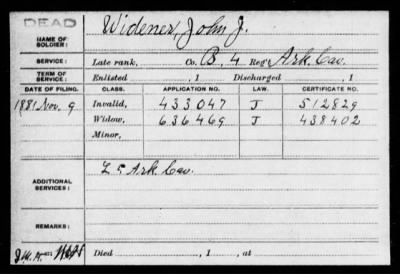 DEAD
NAME OF SOLDIER: Widener, John J.
SERVICE: Late rank, Co. B, 4 Reg't Ark. Cav.
TERM OF SERVICE: Enlisted , 1 Discharged , 1
DATE OF FILING. CLASS. APPLICATION NO. LAW. CERTIFICATE NO.
1881 Nov. 9 Invalid, 433047 J 512829
Widow, 636469 J 438402
Minor,
ADDITIONAL SERVICES: L 5 Ark. Cav.
REMARKS:
Died , 1 , at